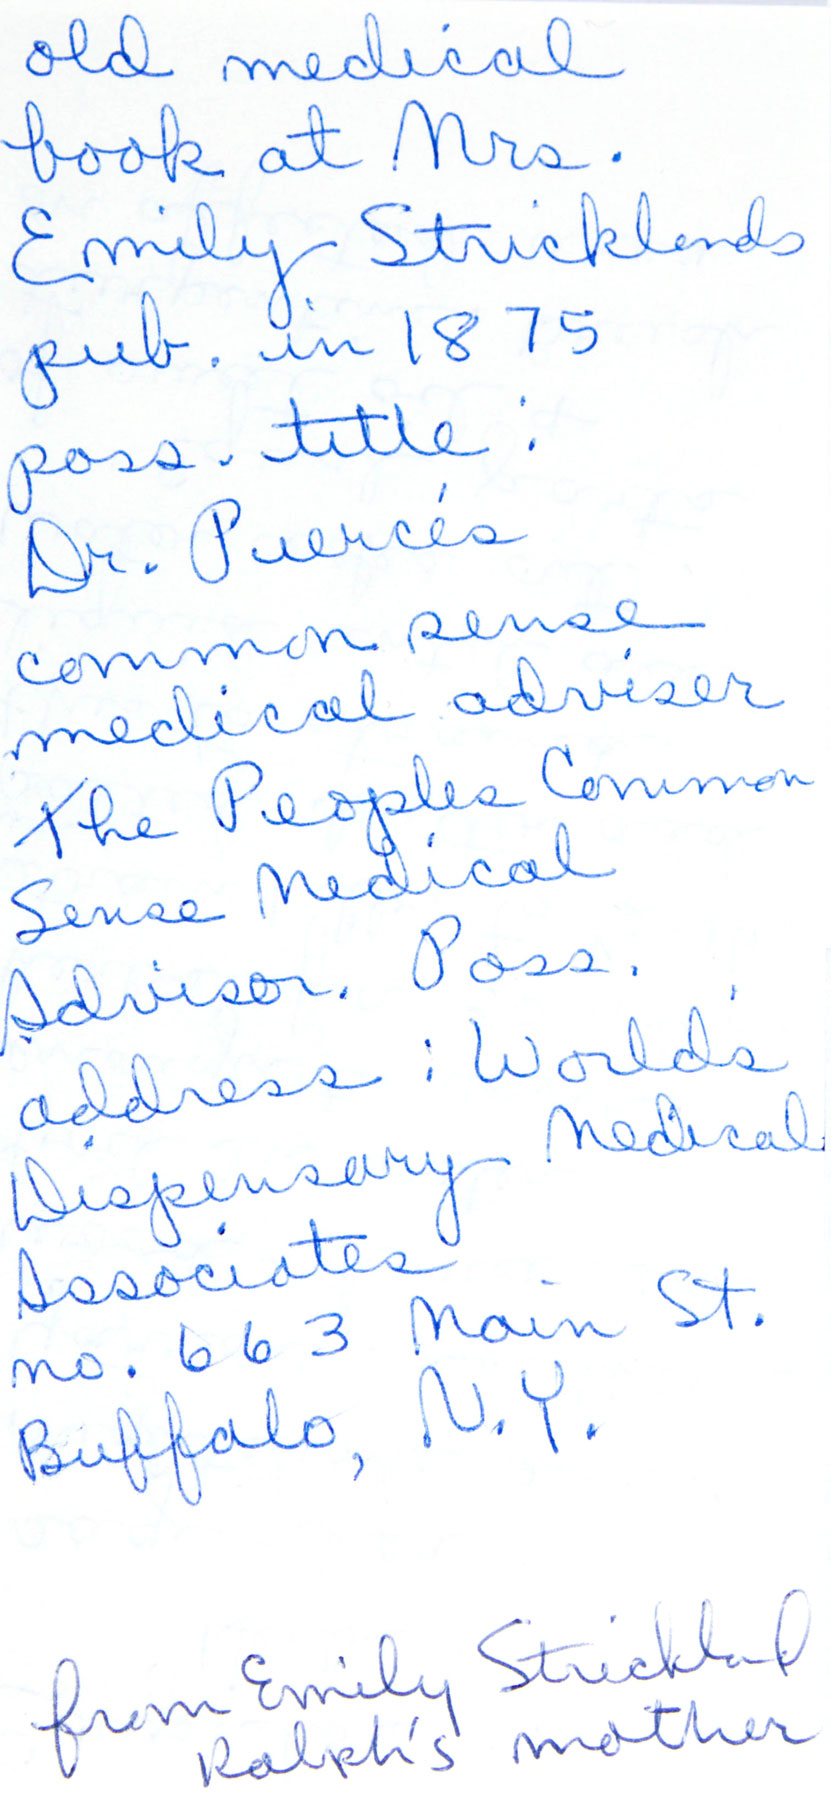 old medical
book at Mrs.
Emily Stricklands
pub. in 1875
poss. title:
Dr. Pierce's
common sense
medical adviser
The Peoples Common
Sense Medical
Advisor. Poss.
address: World's
Dispensary Medical
Associates
no. 663 Main St.
Buffalo, N.Y.
from Emily Strickland
Ralph's mother